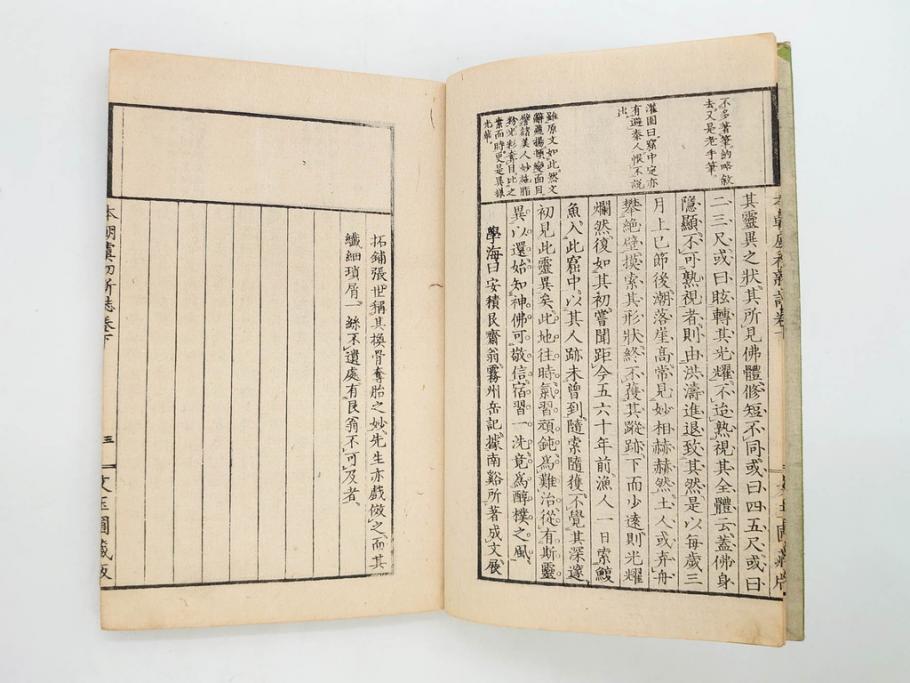 不多著筆、的略敘
去、又是老手筆。
灌園曰、窟中定亦
有避秦人、恨不說
出。
雖原文如此、然文
譬諸美人妙施脂
粉、光彩奪目、比之
素面時、更是異樣
光華。
其靈異之狀、其所見佛體修短不同、或曰四五尺、或曰
二三尺、或曰眩轉其光耀、不迨熟視其全體云、蓋佛身
隱顯、不可熟視者、則由洪濤進退致其然、是以每歲三
月上巳節後、潮落崖高、常見妙相赫赫然、土人或弃舟
攀絶壁、摸索其形狀、終不獲其蹤跡、下而少遠、則光耀
爛然復如其初、嘗聞距今五六十年前、漁人一日索鰒
魚、入此窟中、以其人跡未曾到、隨索隨獲、不覺其深邃、
初見此靈異矣。此地往時氣習頑鈍、爲難治、從有斯靈
異、以還始知神佛可敬信、宿習一洗、竟爲醇樸之風。
學海曰、安積艮齋翁霧州岳記、據南谿所著成文、展
拓鋪張、世稱其換骨奪胎之妙、先生亦戲倣之、而其
纖細瑣屑、一絲不遺處、有艮翁不可及者、
本朝虞初新誌卷下
五
文玉圃藏版